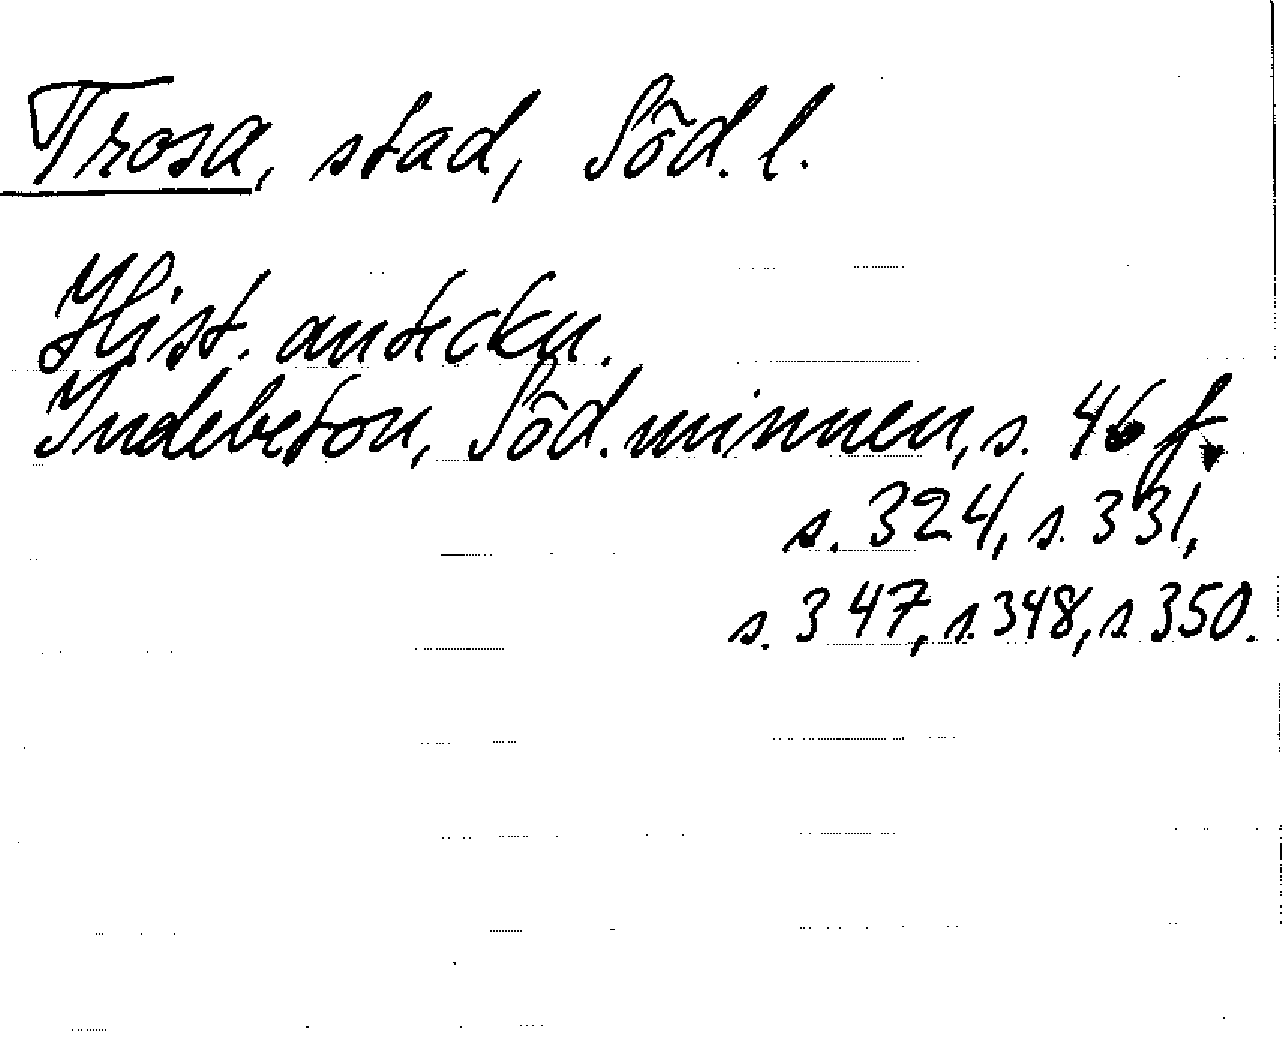 Trosa, stad, Söd. l.
Hist. anteckn.
Indebetou, Söd. minnen, s. 46 f.
s. 324, s. 331,
s. 347, s. 348, s 350.